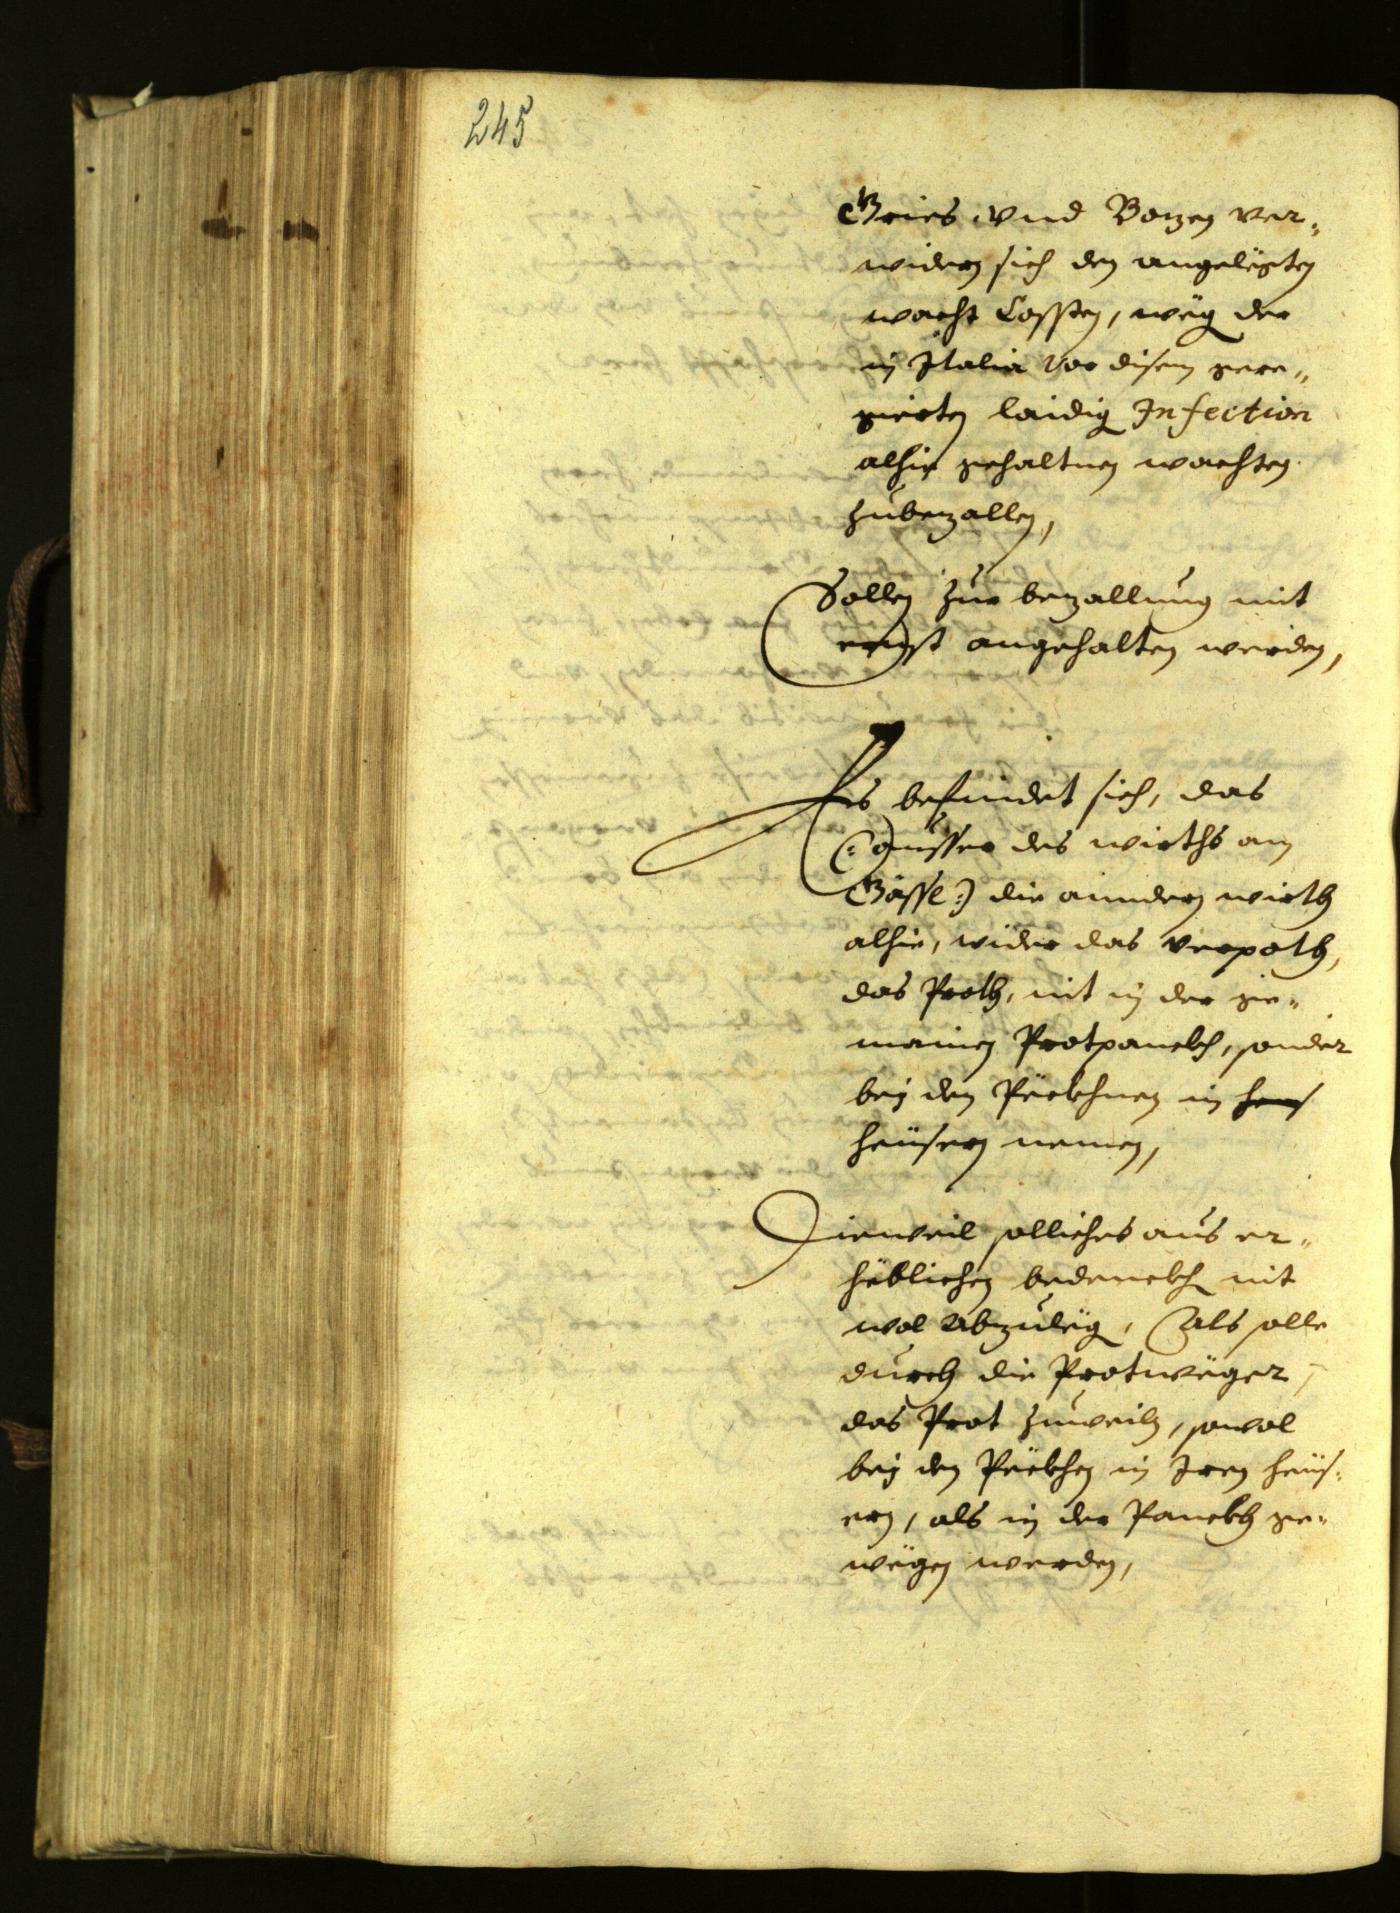 245
Gries vnd Botzen ver„
widern sich den angelegten
wacht Cossten, weg der
in Italia vor disem gere„
gierten laidig Infection
alhie gehaltnen wachten
zubezallen,
Sollen zur bezallung mit
ernst angehalten werden,
Es befindet sich, das
(: ausser des wirths am
Gässl :) die anndern wirth
alhie, wider das verpoth,
das Proth, nit in der ge„
mainen Protpanckh, sonder
bey den Peckhnen in heus
heüsern nemen,
Dieweil solliches aus er„
heblichen bedenckh nit
wol abzuleg, Als solle
durch die Protweger,
das Prot zuweiln, sowol
bey den Peckhen in Iren heüs„
ern, als in der Panckh ge„
wegen werden,